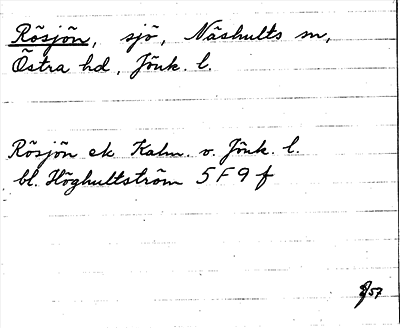 Rösjön, sjö, Näshults sn,
Östra hd, Jönk. l.
Rösjön ek Kalm. o. Jönk. l.
bl. Höghultström 5F9f